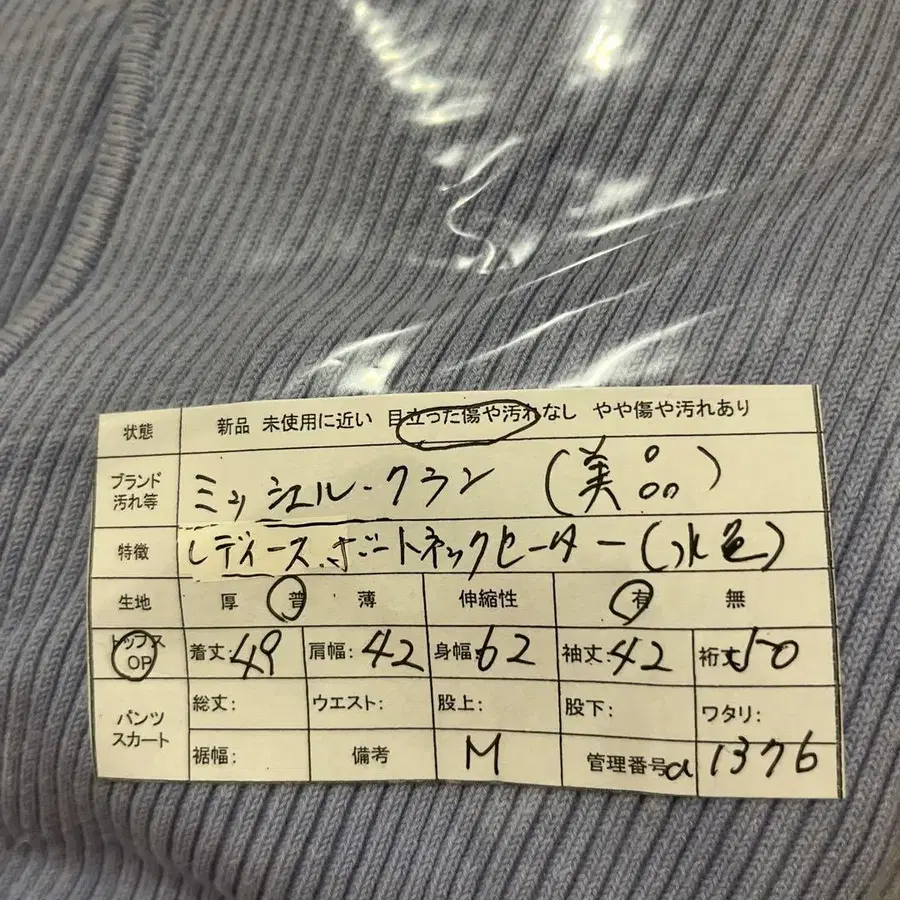 状態 新品 未使用に近い 目立った傷や汚れなし やや傷や汚れあり
ブランド 汚れ等 ミッシェル・クラン (美品)
特徴 レディース.ボートネックセーター(水色)
生地 厚 普 薄 伸縮性 有 無
トップス OP 着丈:49 肩幅:42 身幅:62 袖丈:42 裄丈50
パンツ スカート 総丈: ウエスト: 股上: 股下: ワタリ:
裾幅: 備考 M 管理番号a 1376